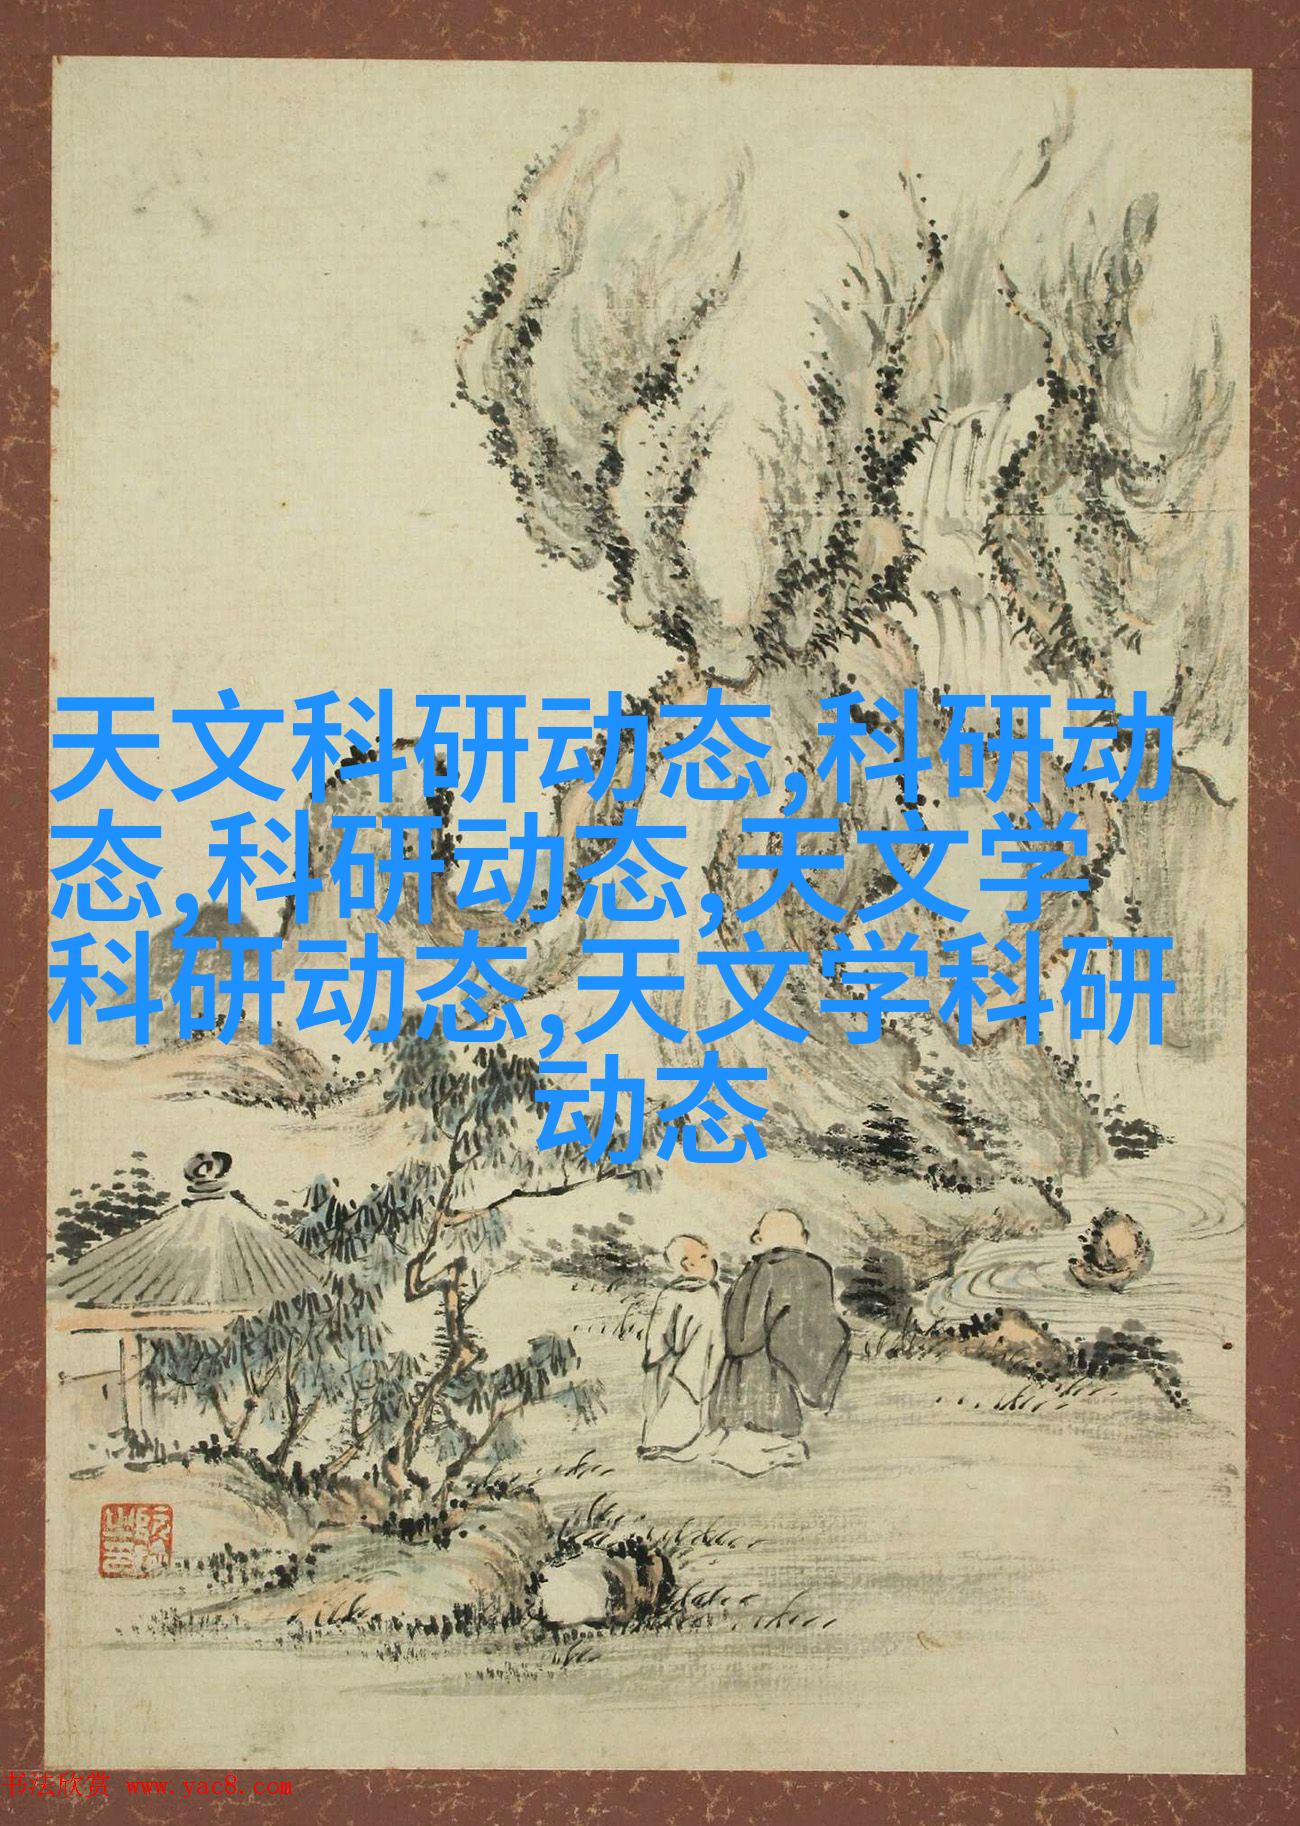 天文科研动态,科研动
态,科研动态,天文学
科研动态,天文学科研
动态
书法欣赏 www.yac8.com